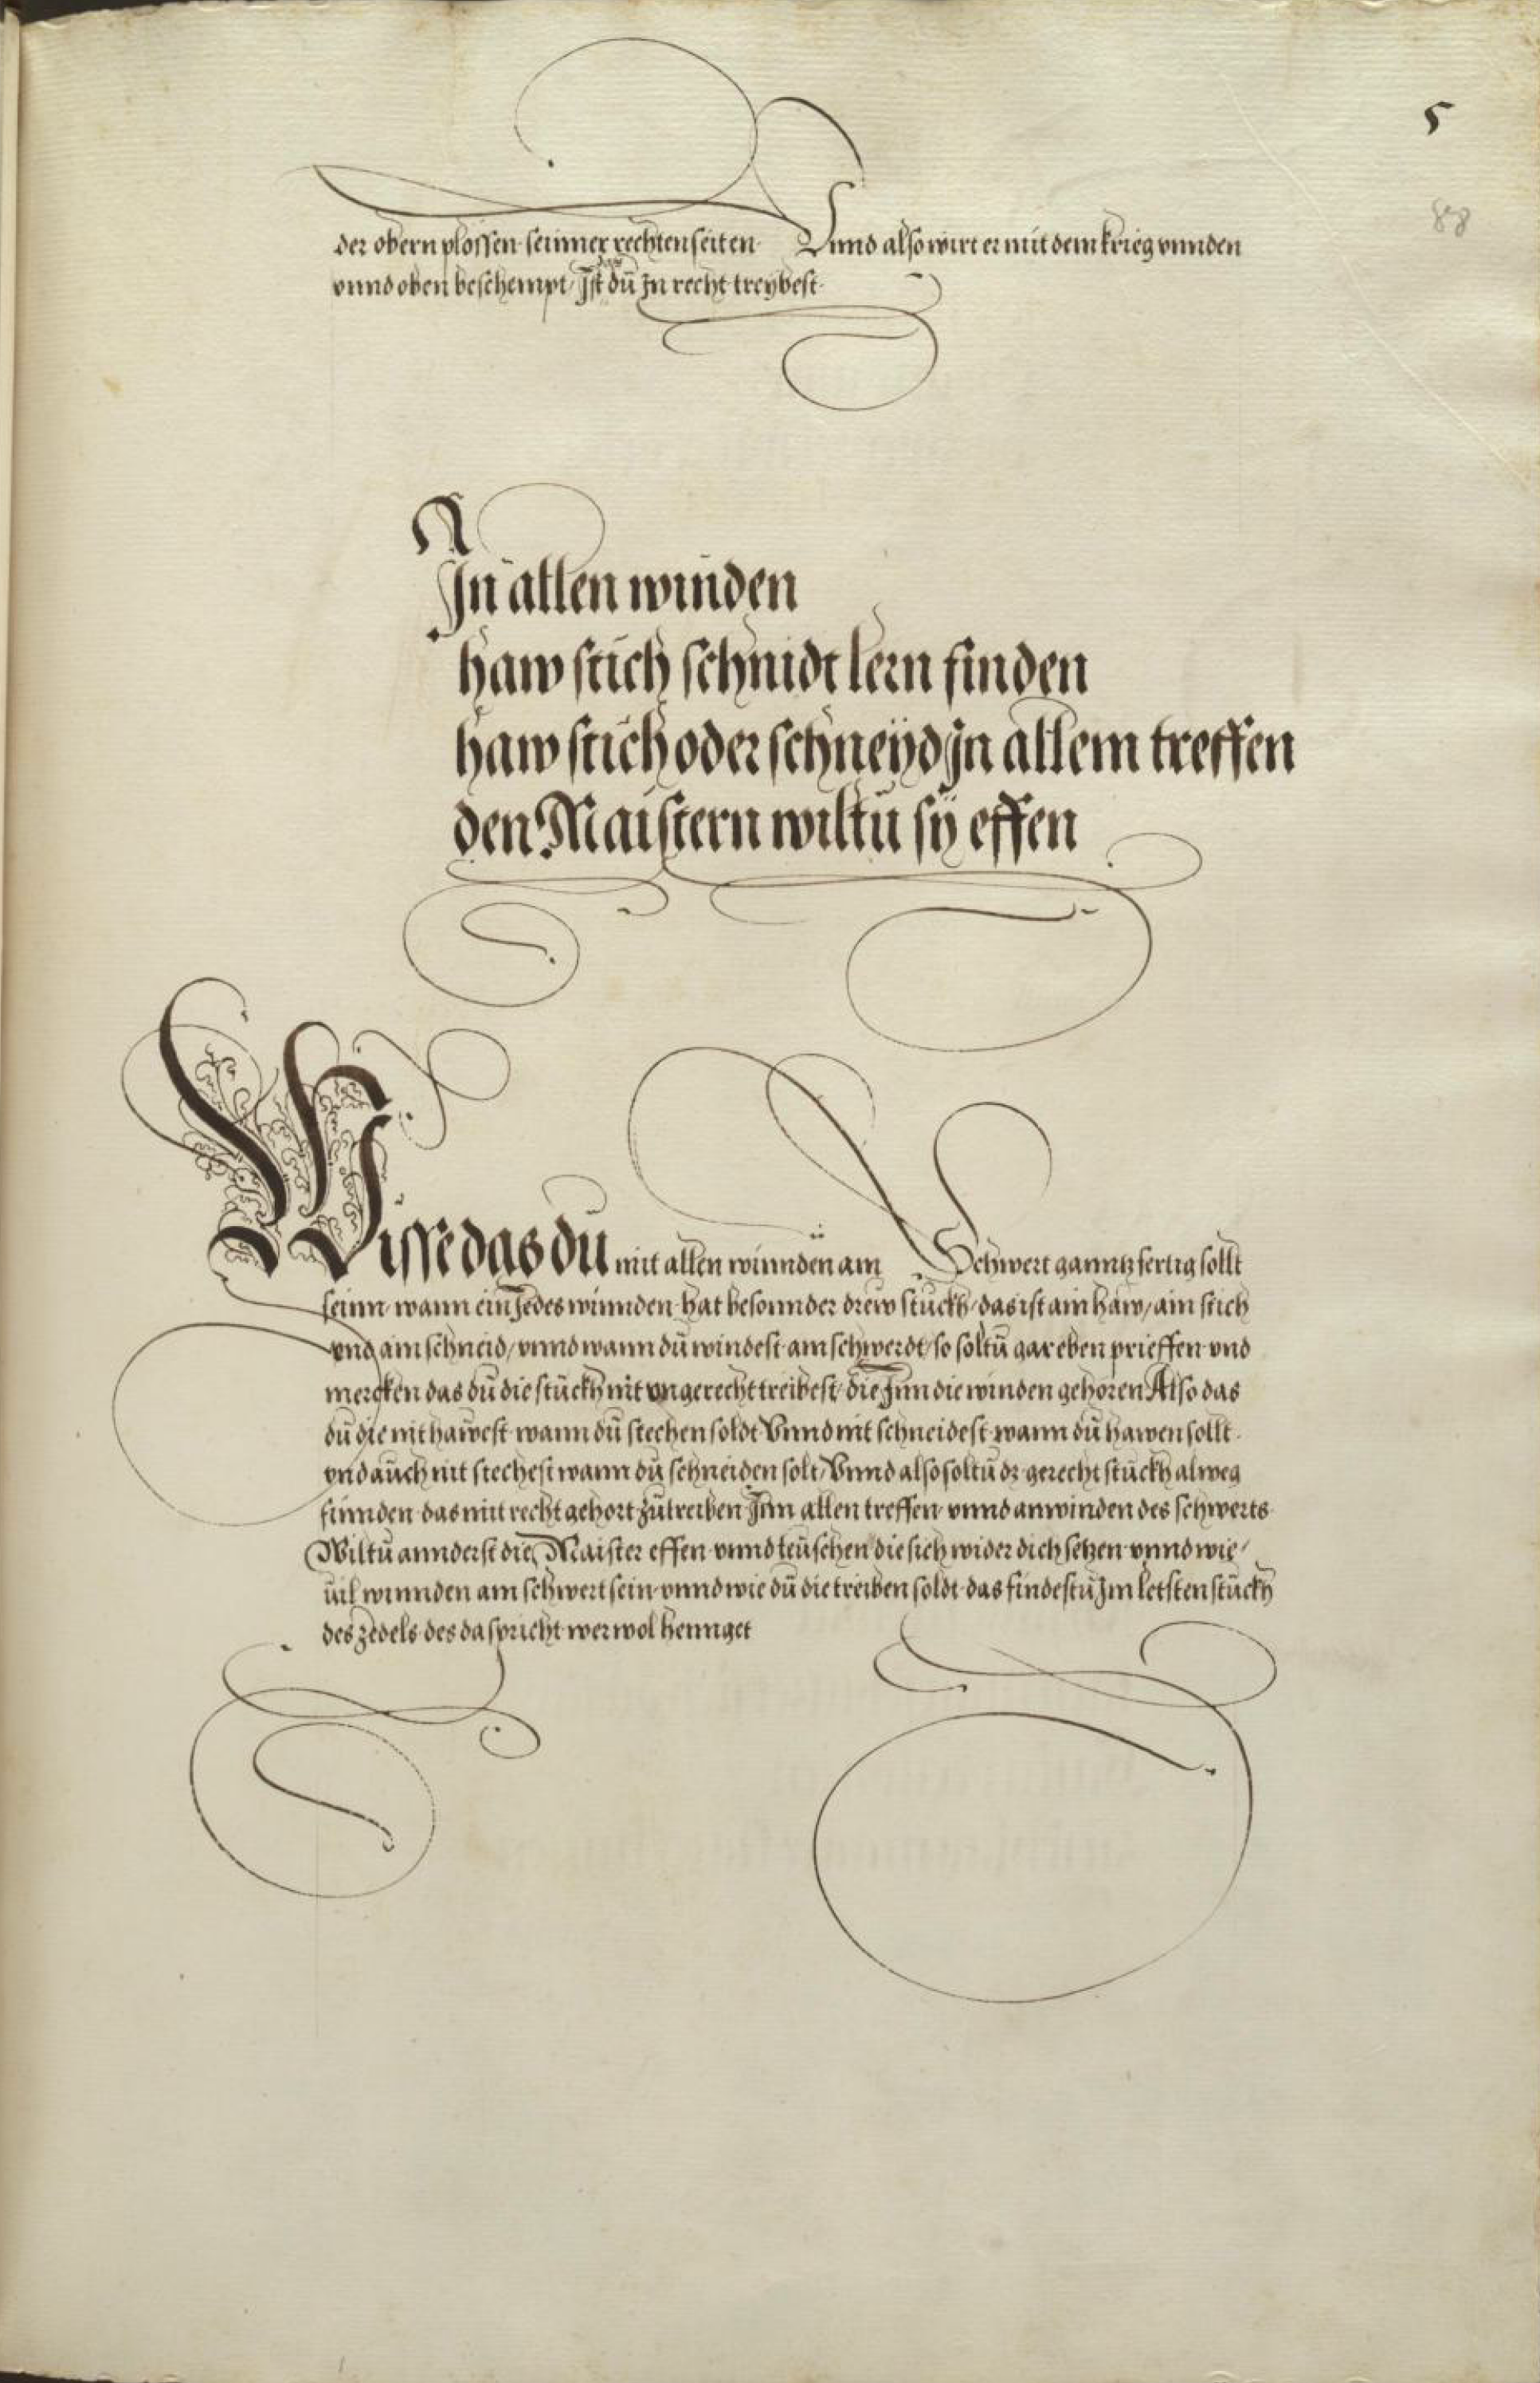 5
88
der obern plossen seinner rechten seiten Vnnd also wirt er mit dem krieg vnnden
das
vnnd oben beschempt / Ist dŭ In recht treybest
In allen winden
haw stich schnidt lern finden
haw stich oder schneÿd In allem treffen
den Maistern wiltŭ sÿ effen
Wisse das dŭ mit allen winnden am Schwert ganntz fertig sollt
seinn wann ein Jedes winnden hat besonnder drew stŭckh / das ist ain haw / ain stich
vnd ain schneid / vnnd wann dŭ windest am schwerdt / so soltŭ gar eben prieffen vnd
mercken das dŭ die stŭckh nit vngerecht treibest / die Inn die winden gehoren Also das
dŭ die nit hawest wann dŭ stechen soldt Vnnd nit schneidest wann dŭ hawen sollt
vnd aŭch nit stechest wann dŭ schneiden solt / Vnnd also soltŭ dz gerecht stŭckh alweg
finnden das mit recht gehort zŭ treiben Inn allen treffen vnnd anwinden des schwerts
Wiltŭ annderst die Maister effen vnnd teŭschen die sich wider dich setzen vnnd wie /
uil winnden am schwert sein vnnd wie dŭ die treiben soldt das findestŭ Im letsten stŭckh
des zedels des da spricht wer wol henget